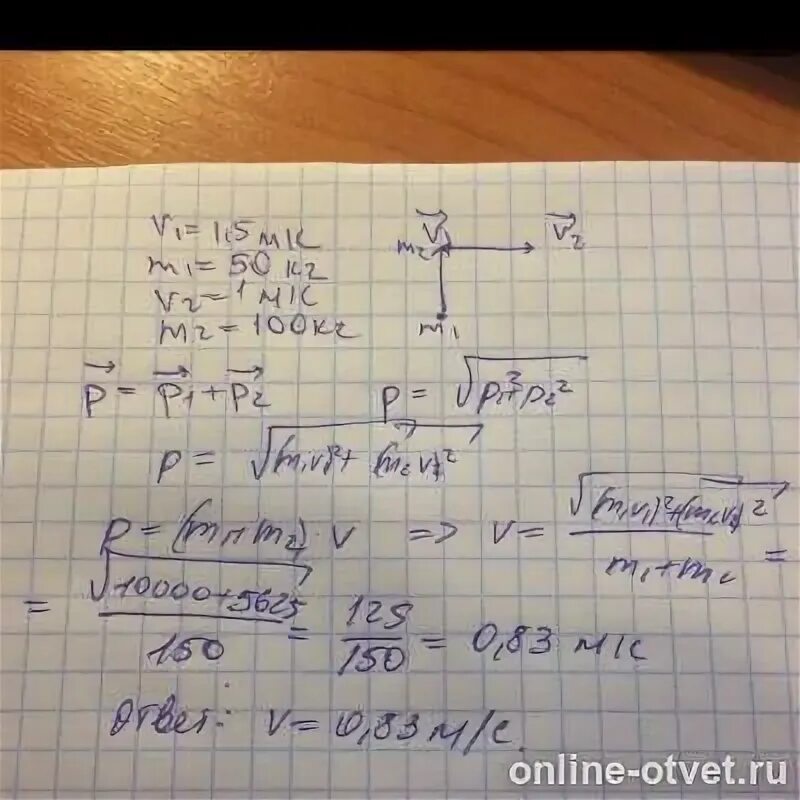 v₁ = 1,5 м/с
m₁ = 50 кг
v₂ = 1 м/с
m₂ = 100 кг
V⃗
m₂
V⃗₂
m₁
p⃗ = p⃗₁ + p⃗₂
p = √(p₁² + p₂²)
p = √((m₁v₁)² + (m₂v₂)²)
p = (m₁ + m₂) · v => v = √((m₁v₁)² + (m₂v₂)²) / (m₁ + m₂) =
= √(10000 + 5625) / 150 = 125 / 150 = 0,83 м/с
Ответ: v = 0,83 м/с.
online-otvet.ru